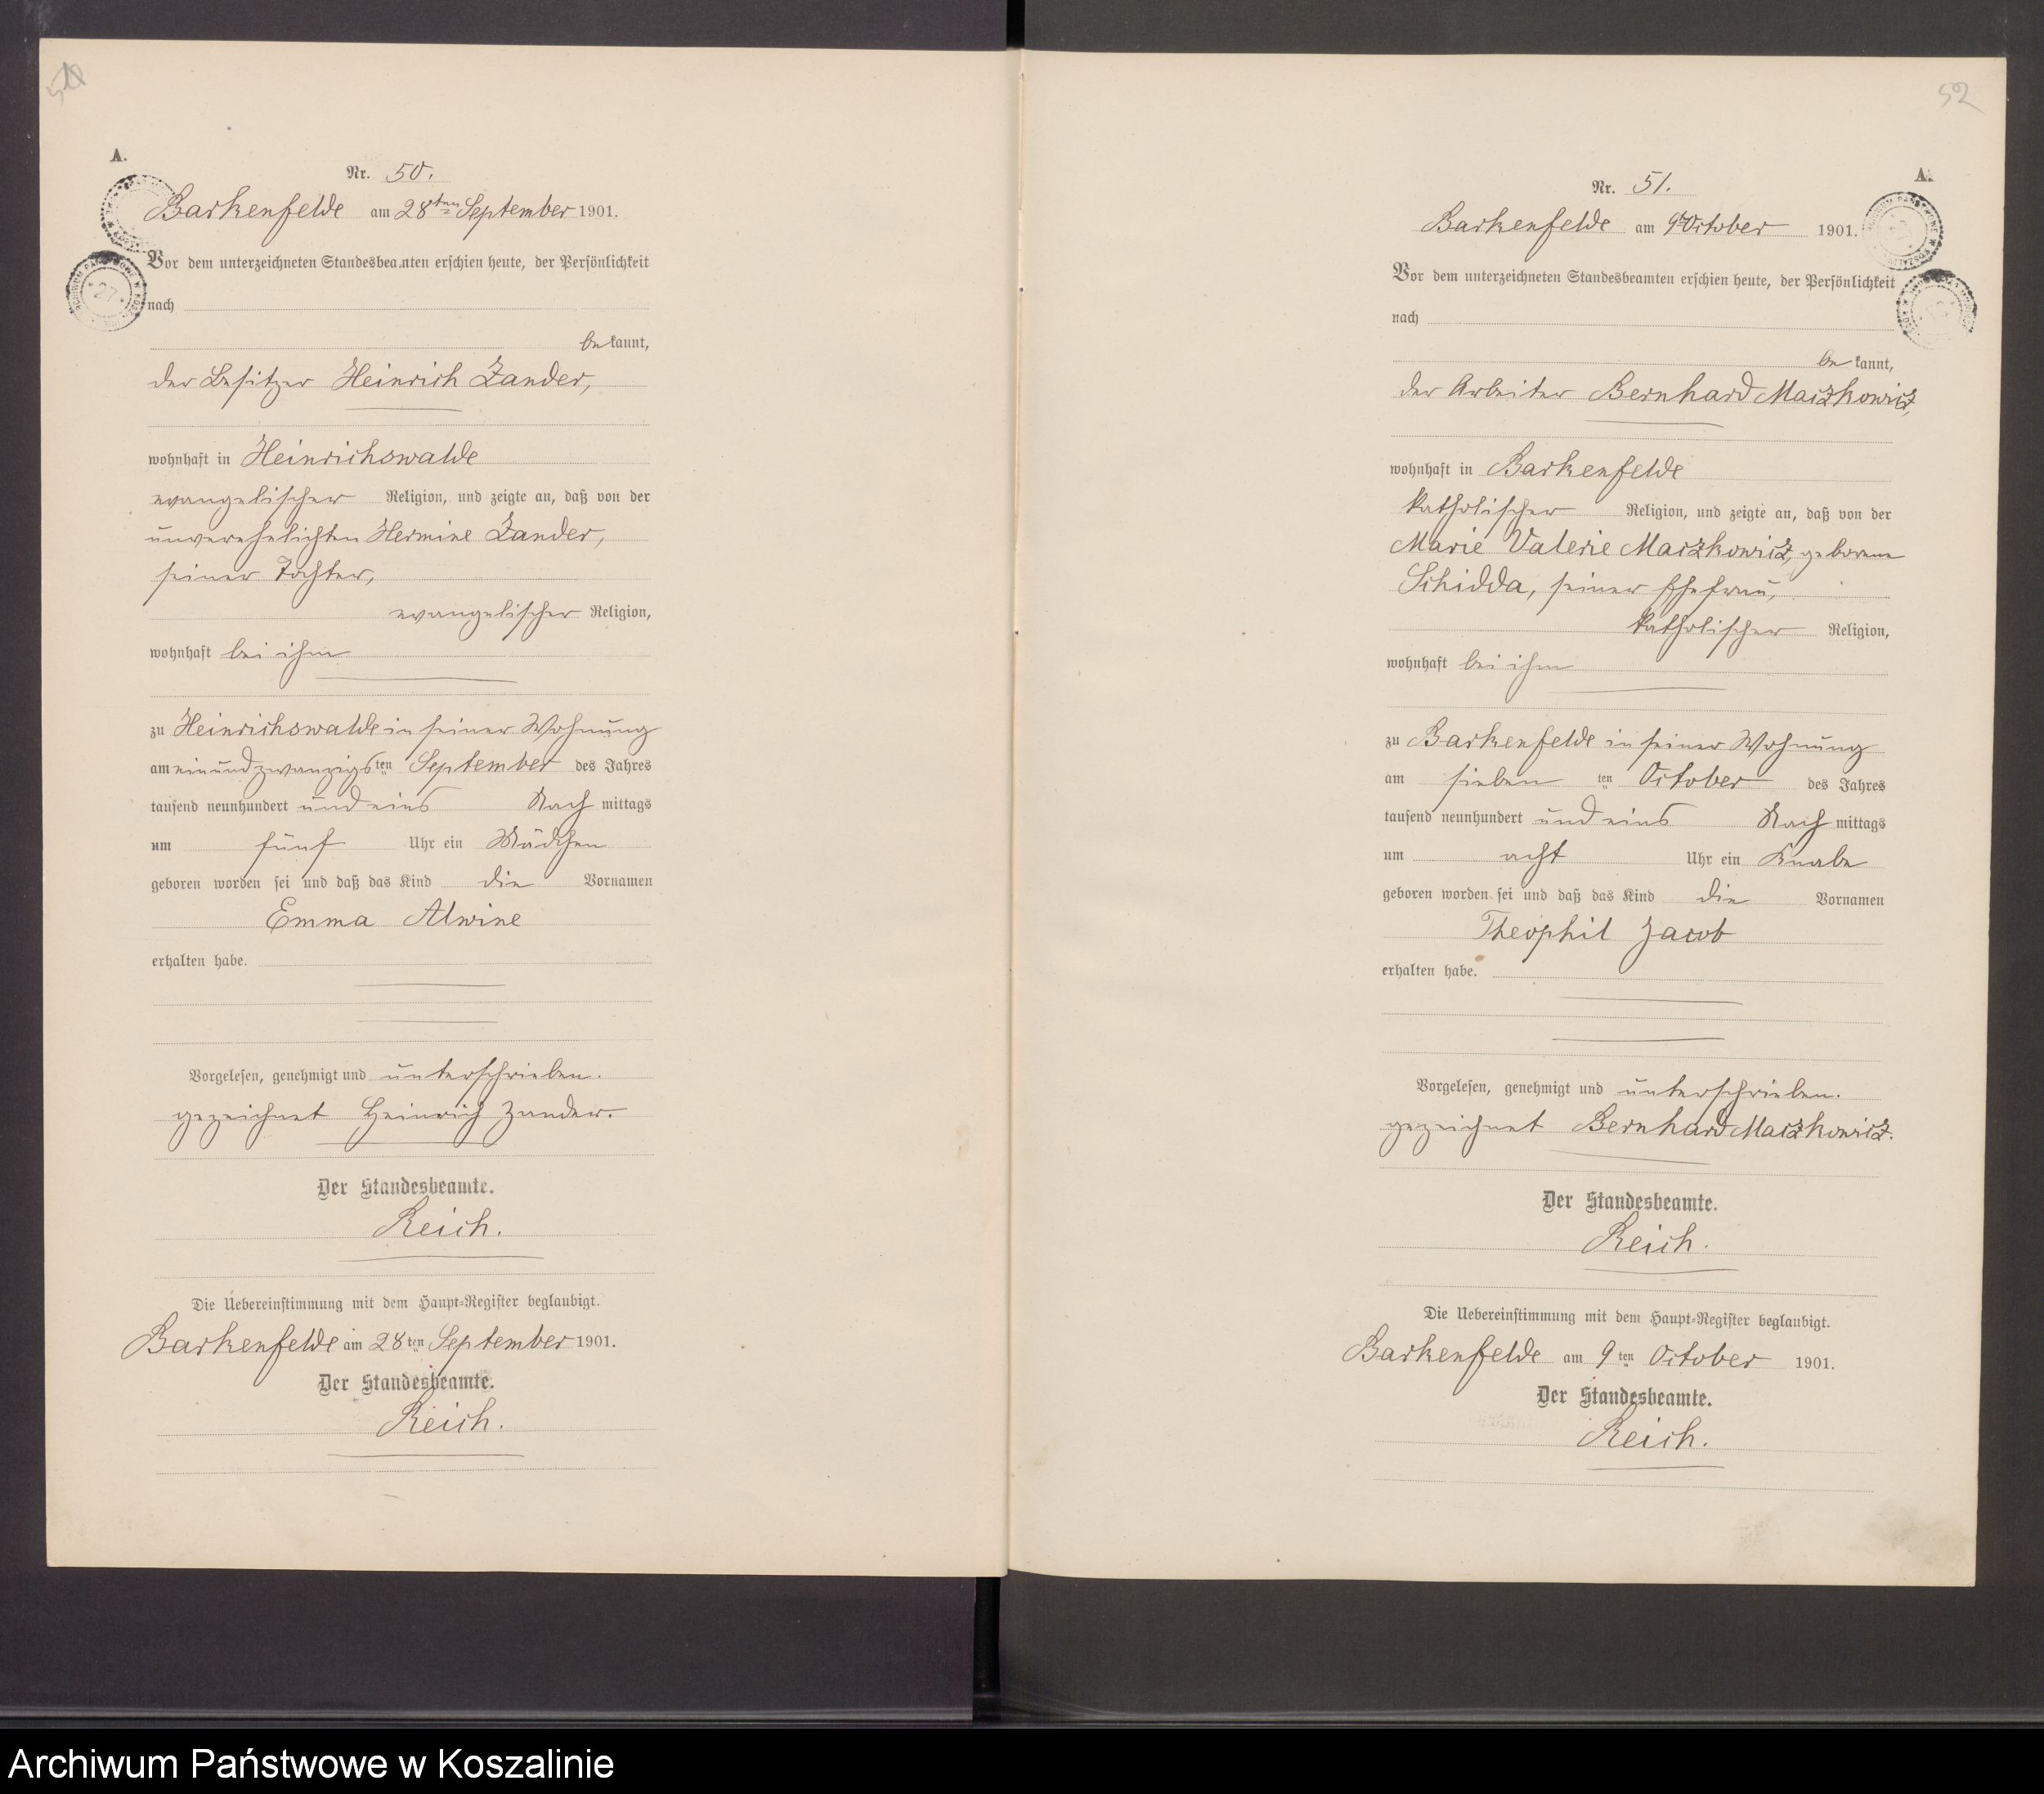 A.
Nr. 50.
Barkenfelde am 28ten September 1901.
Vor dem unterzeichneten Standesbeamten erschien heute, der Persönlichkeit
nach
be kannt,
der Besitzer Heinrich Zander,
wohnhaft in Heinrichswalde
evangelischer Religion, und zeigte an, daß von der
unverehelichten Hermine Zander,
seiner Tochter,
evangelischer Religion,
wohnhaft bei ihm
zu Heinrichswalde in seiner Wohnung
am einundzwanzigsten September des Jahres
tausend neunhundert und eins Nach mittags
um fünf Uhr ein Mädchen
geboren worden sei und daß das Kind die Vornamen
Emma Alwine
erhalten habe.
Vorgelesen, genehmigt und unterschrieben.
gezeichnet Heinrich Zander.
Der Standesbeamte.
Reich.
Die Uebereinstimmung mit dem Haupt-Register beglaubigt.
Barkenfelde am 28ten September 1901.
Der Standesbeamte.
Reich.
52
A.
Nr. 51.
Barkenfelde am 9ten October 1901.
Vor dem unterzeichneten Standesbeamten erschien heute, der Persönlichkeit
nach
be kannt,
der Arbeiter Bernhard Maczkowicz,
wohnhaft in Barkenfelde
katholischer Religion, und zeigte an, daß von der
Marie Valerie Maczkowicz, geborene
Schidda, seiner Ehefrau,
katholischer Religion,
wohnhaft bei ihm
zu Barkenfelde in seiner Wohnung
am sieben ten October des Jahres
tausend neunhundert und eins Nach mittags
um acht Uhr ein Knabe
geboren worden sei und daß das Kind die Vornamen
Theophil Jacob
erhalten habe.
Vorgelesen, genehmigt und unterschrieben.
gezeichnet Bernhard Maczkowicz.
Der Standesbeamte.
Reich.
Die Uebereinstimmung mit dem Haupt-Register beglaubigt.
Barkenfelde am 9ten October 1901.
Der Standesbeamte.
Reich.
Archiwum Państwowe w Koszalinie